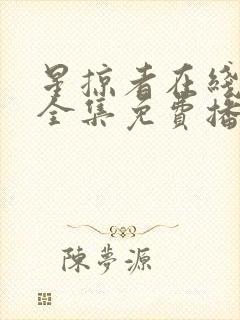 星掠者在綫
全集免費播
陳夢源